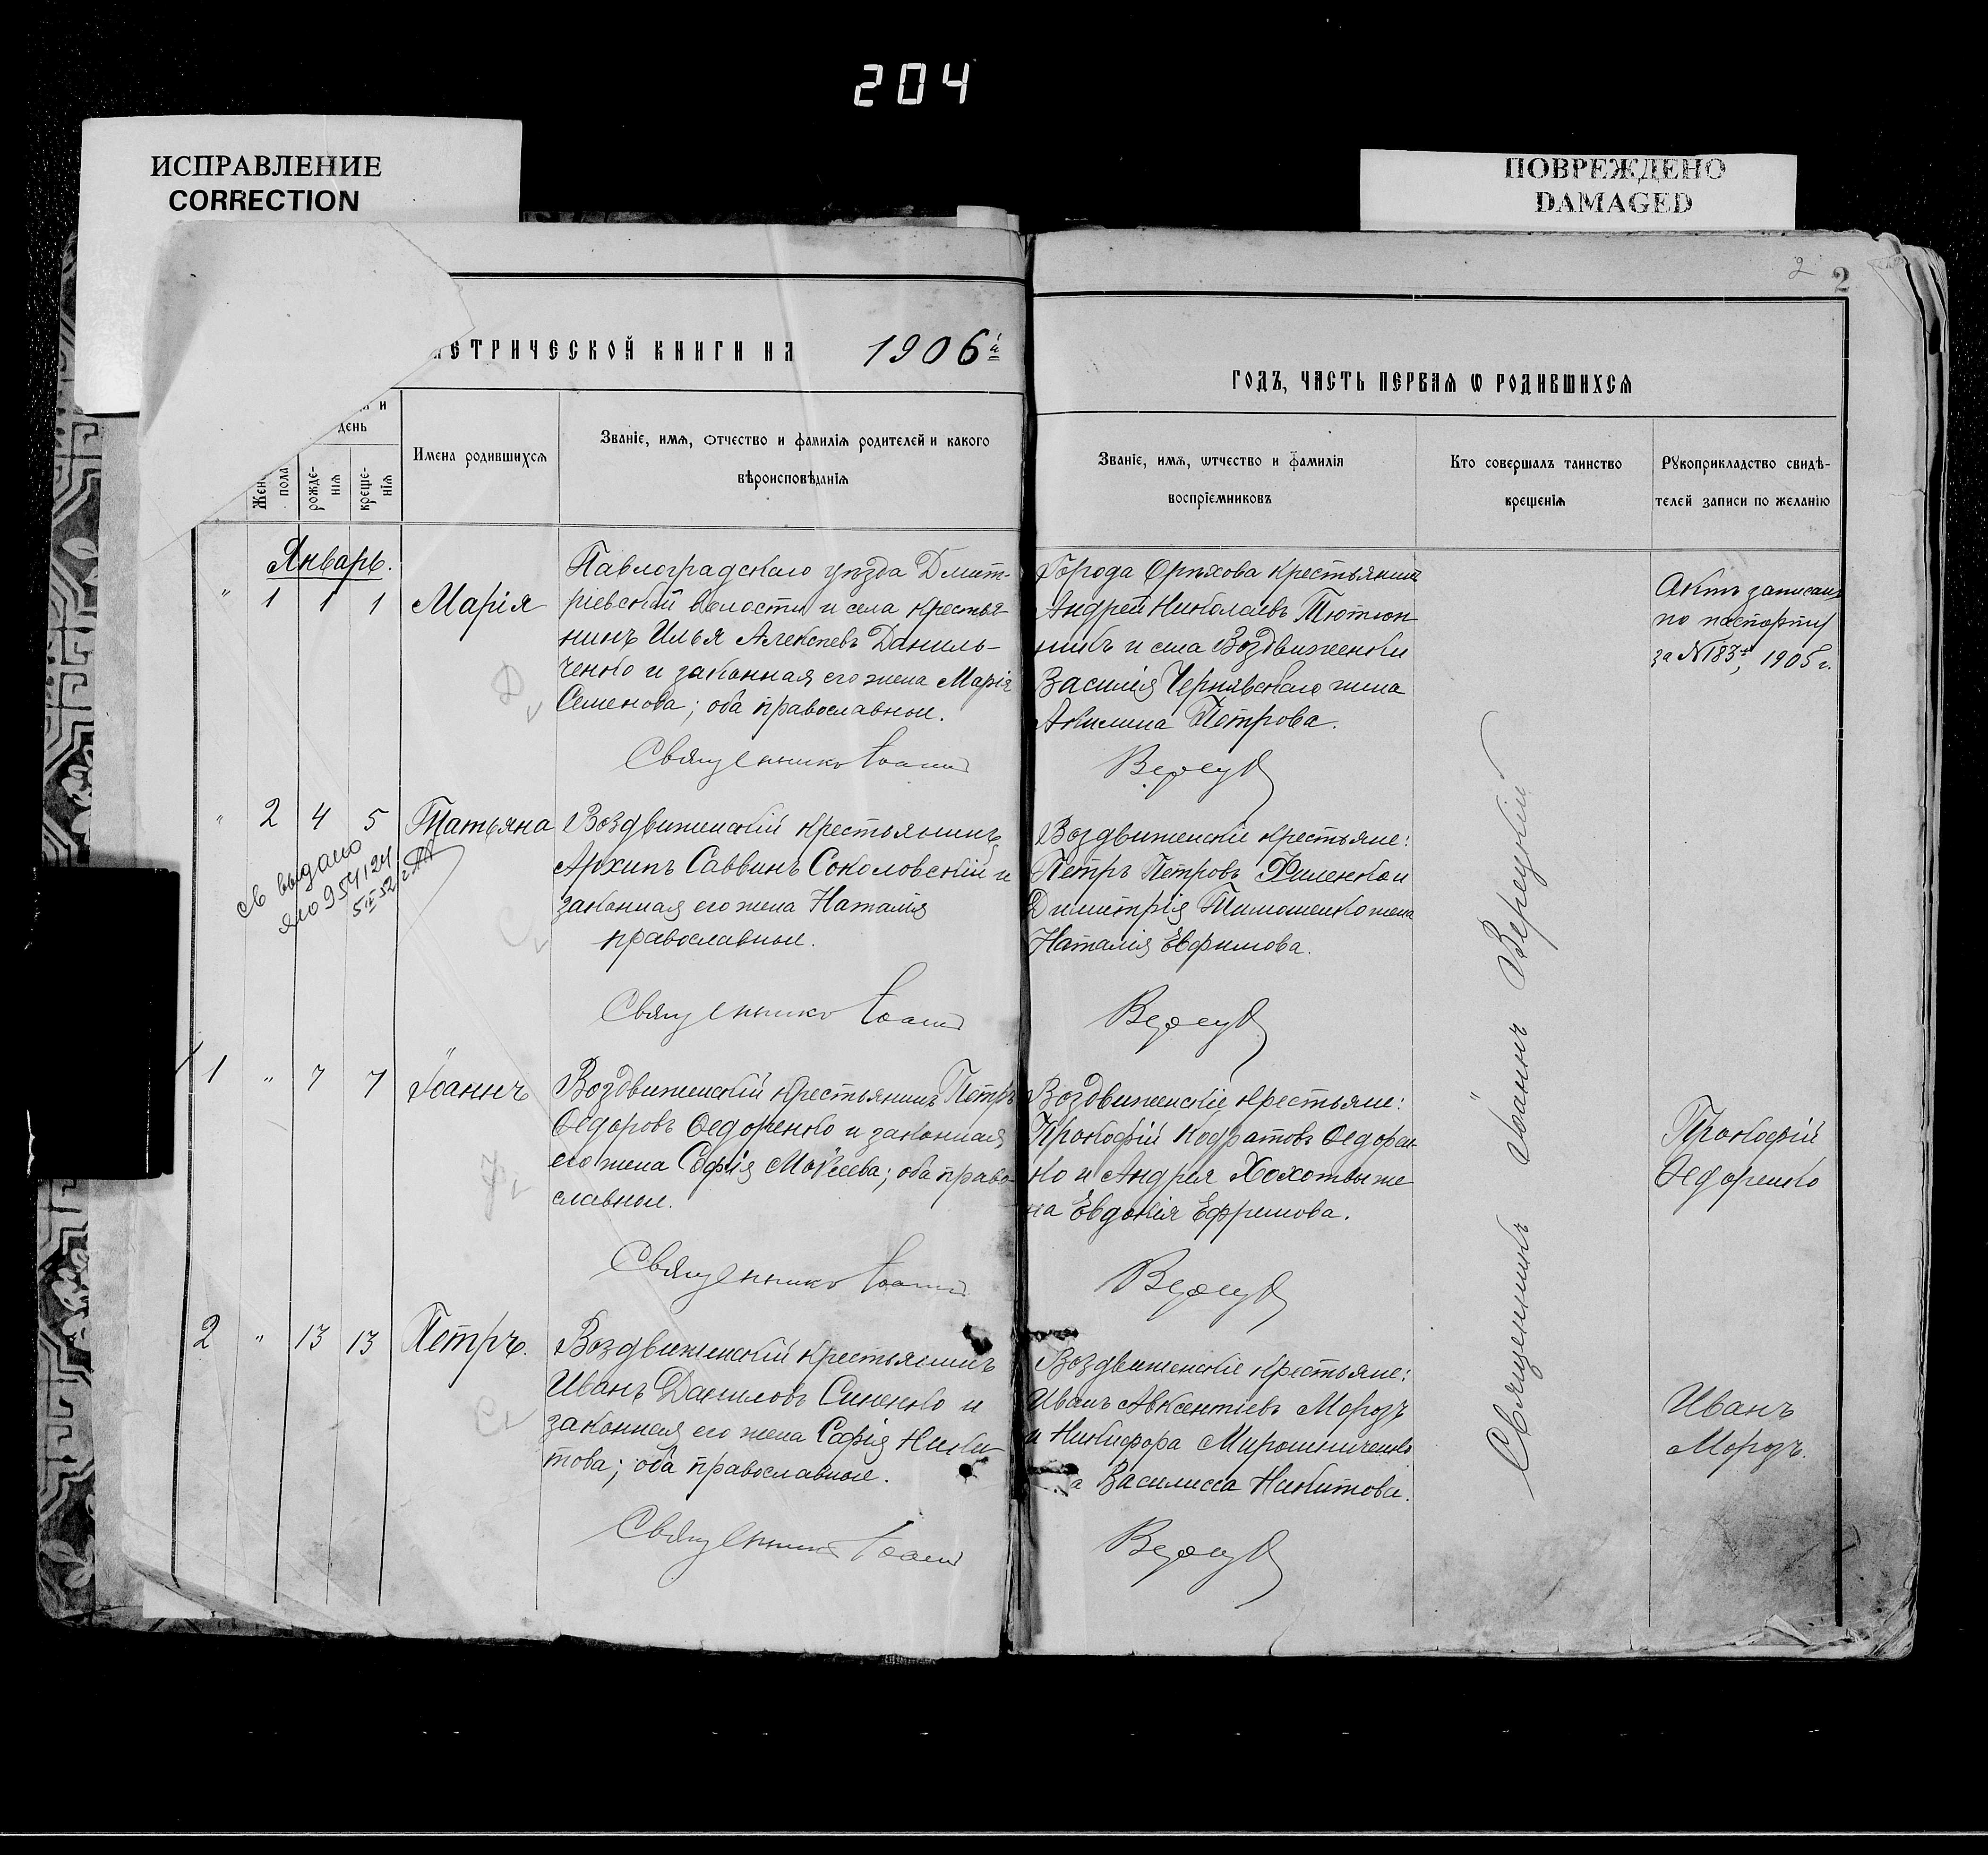 204
ИСПРАВЛЕНИЕ
CORRECTION
ПОВРЕЖДЕНО
DAMAGED
2
2
МЕТРИЧЕСКОЙ КНИГИ НА 1906й
ГОДЪ, ЧАСТЬ ПЕРВАѦ Ѡ РОДИВШИХСѦ
и
день
Жен
пола
рожде-
нїѧ
креще-
нїѧ
Имена родившихсѧ
Званїе, имѧ, отчество и фамилїѧ родителей и какого
вѣроисповѣданїѧ
Званїе, имѧ, ѡтчество и фамилїѧ
воспрїемниковъ
Кто совершалъ таинство
крещенїѧ
Рꙋкоприкладство свидѣ-
телей записи по желанїю
Январь.
" 1 1 1 Марія
Павлоградскаго уѣзда Дмит-
ріевской волости и села крестья-
нинъ Илья Алексѣевъ Даниль-
ченко и законная его жена Марія
Семенова; оба православные.
Священникъ Іоаннъ
Города Орѣхова крестьянинъ
Андрей Николаевъ Тютюн
никъ и села Воздвиженки
Василія Чернявскаго жена
Акилина Петрова.
Верецк
Актъ записанъ
по паспорту
за №183м, 1905 г.
" 2 4 5 Татьяна
св выдано
яю 954124
5 IX 52 г
Воздвиженскій крестьянинъ
Архипъ Саввинъ Соколовскій и
законная его жена Наталія
православные.
Священникъ Іоаннъ
Воздвиженскіе крестьяне:
Петръ Петровъ Филенко и
Димитрія Тимошенко жена
Наталія Евфимова.
Верецк
1 " 7 7 Іоаннъ
Воздвиженскій крестьянинъ Петръ
Ѳедоровъ Ѳедоренко и законная
его жена Софія Мокіева; оба право-
славные.
Священникъ Іоаннъ
Воздвиженскіе крестьяне:
Прокофій Кодратовъ Ѳедорен
ко и Андрея Хохотвы же
на Евдокія Ефремова.
Верецк
Прокофій
Ѳедоренко
2 " 13 13 Петръ.
Воздвиженскій крестьянинъ
Иванъ Даниловъ Синенко и
законная его жена Софія Ники-
това; оба православные.
Священникъ Іоаннъ
Воздвиженскіе крестьяне:
Иванъ Авксентіевъ Морозъ
и Никифора Мирошниченко
а Василисса Никитова.
Верецк
Иванъ
Морозъ.
Священникъ Іоаннъ Верецкій